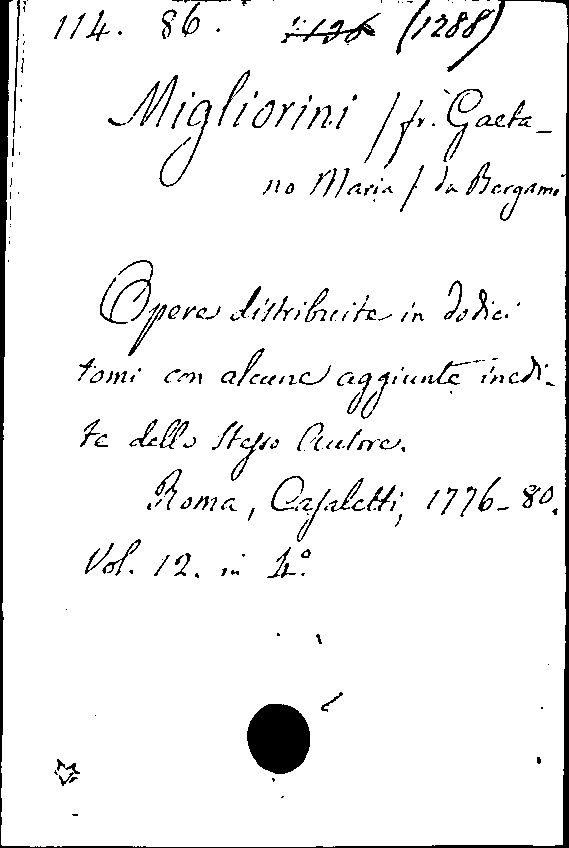 114. 86. (1288)
Migliorini / fr. Gaeta-
no Maria / da Bergamo
Opere distribuite in dodici
tomi con alcune aggiunte inedi-
te dello Stesso Autore.
Roma, Casaletti, 1776-80.
Vol. 12. in 4º.